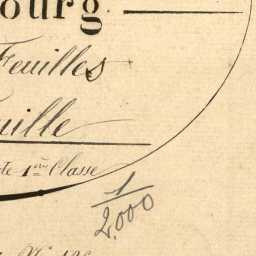 ourg
Feuilles
uille
te 1ère Classe
1/2.000